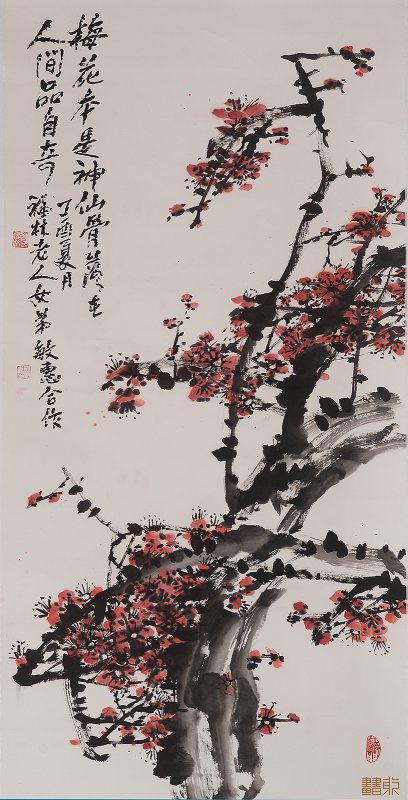 梅花本是神仙骨落在
人间品自奇
丁酉夏月
禄林老人女弟敏惠合作